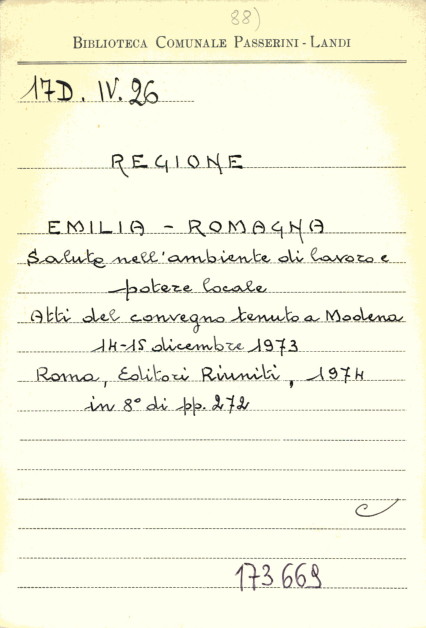 88)
BIBLIOTECA COMUNALE PASSERINI-LANDI
17D. IV. 26
REGIONE
EMILIA - ROMAGNA
Salute nell'ambiente di lavoro e
potere locale
Atti del convegno tenuto a Modena
14-15 dicembre 1973
Roma, Editori Riuniti, 1974
in 8° di pp. 272
173669